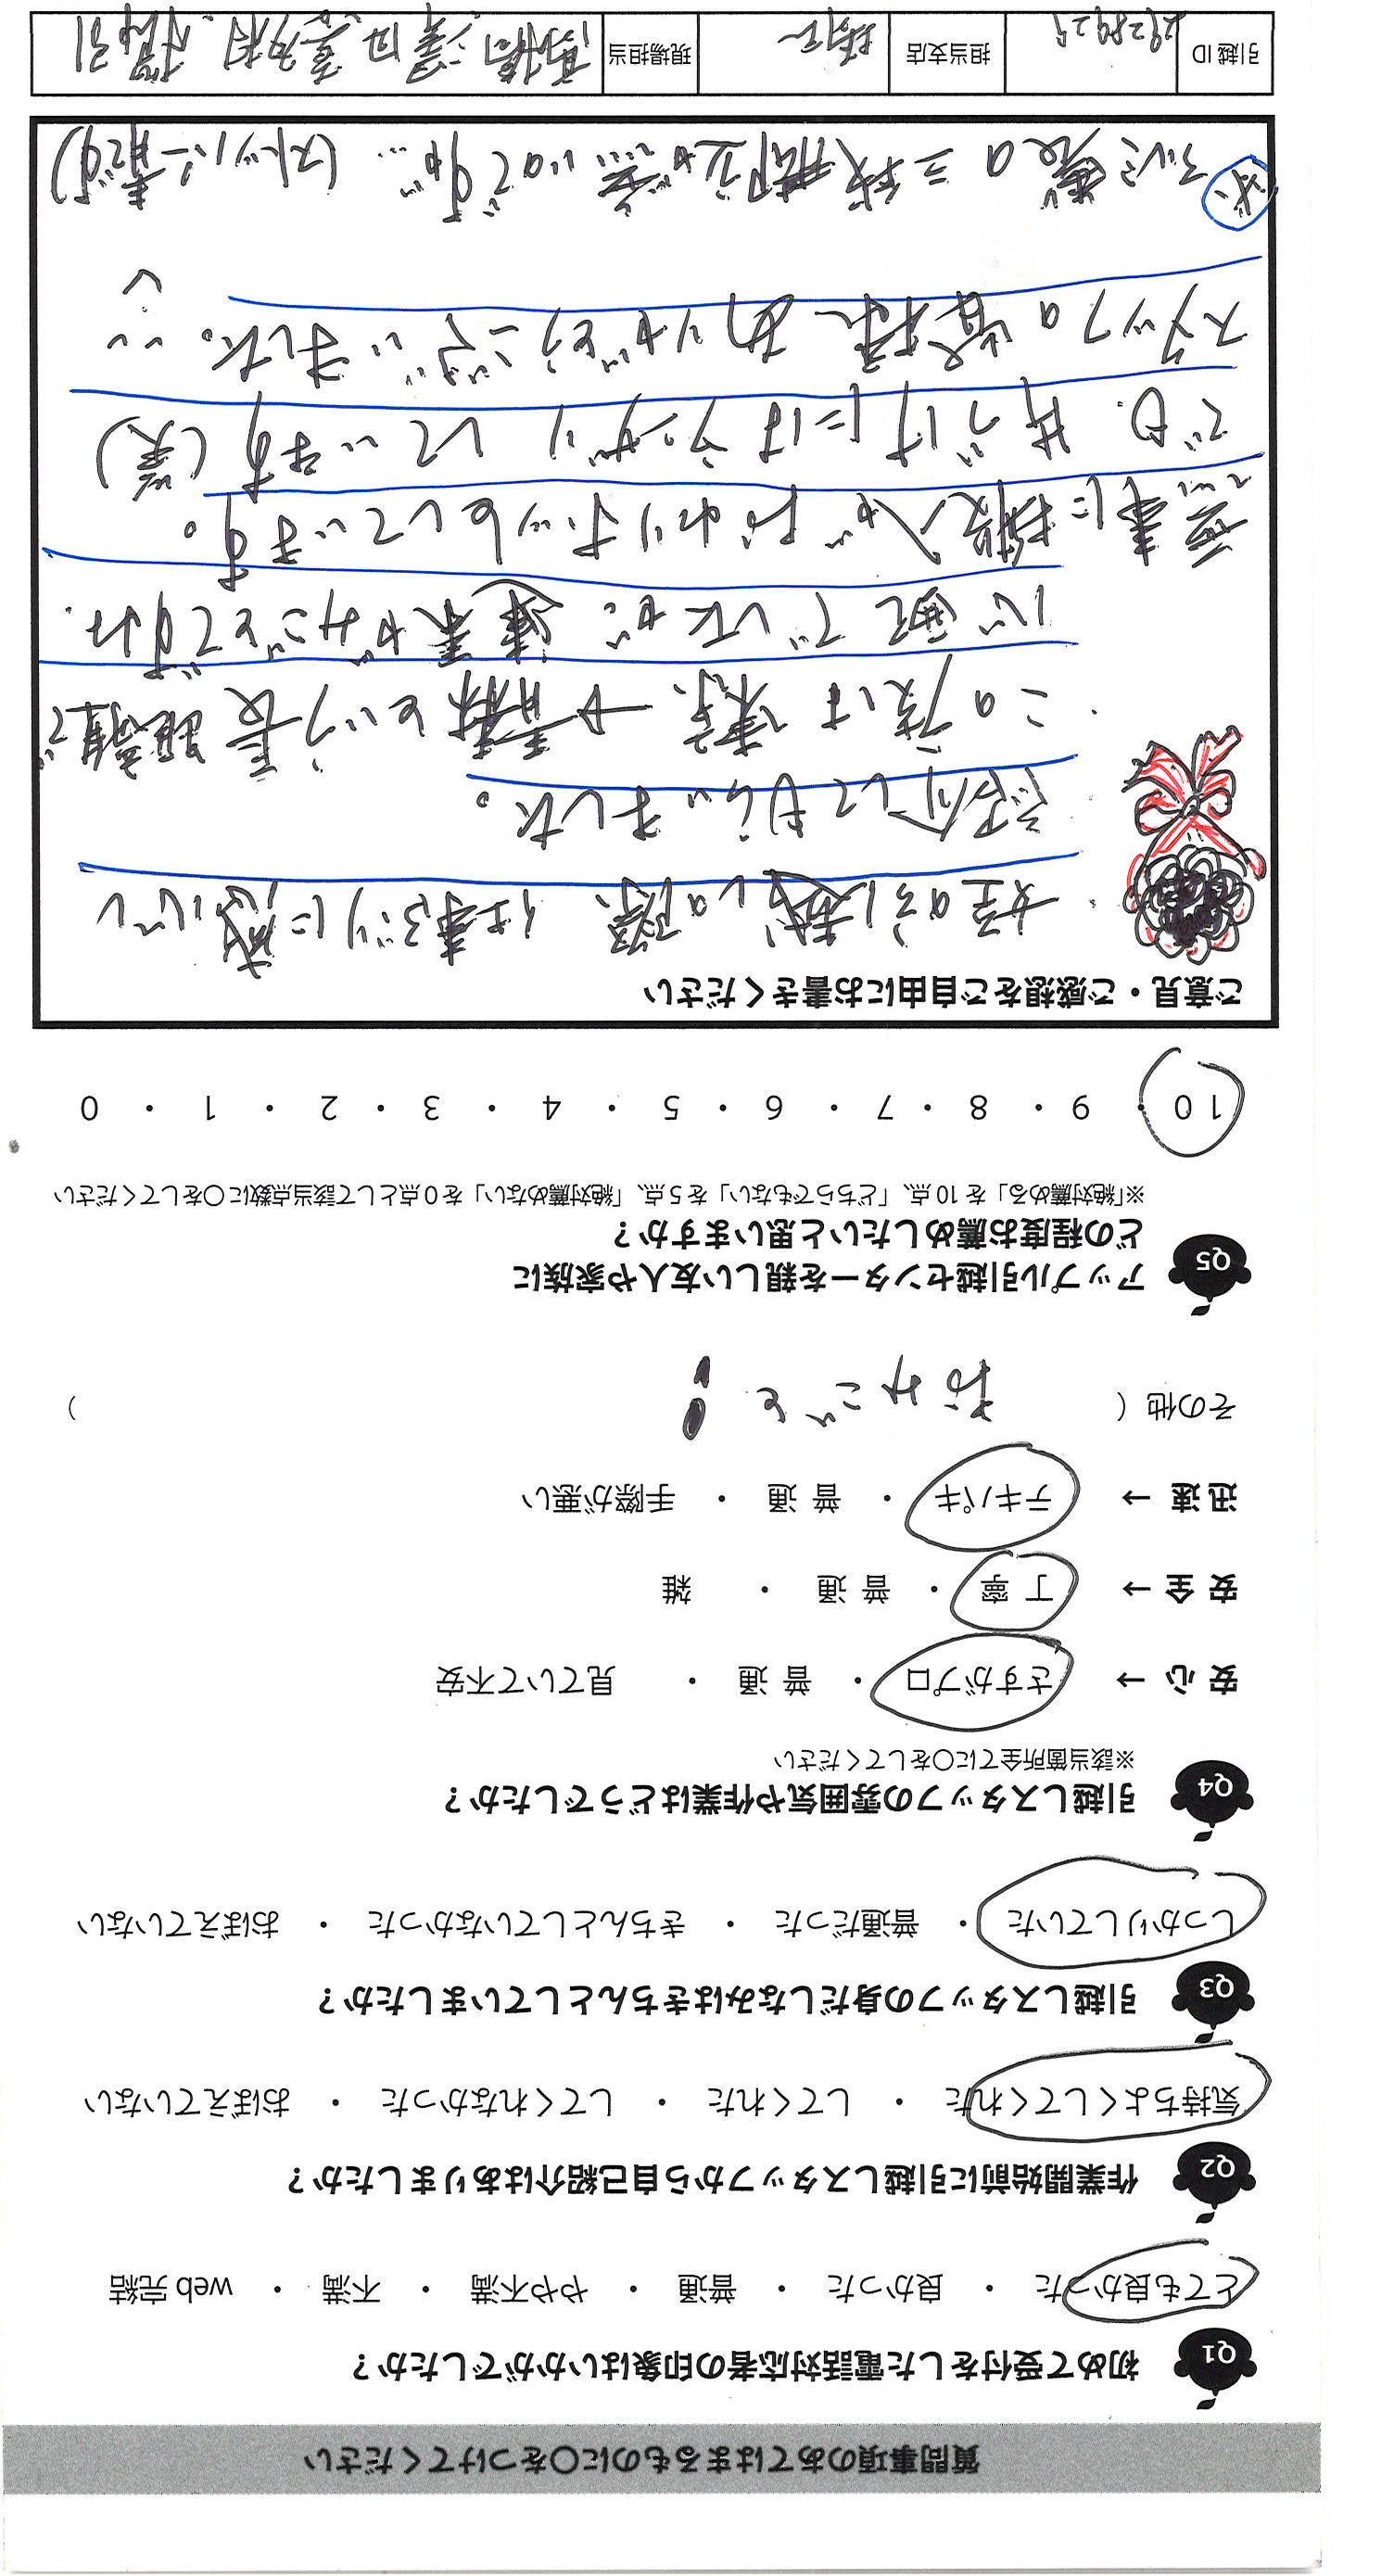 質問事項のあてはまるものに○をつけてください
Q1 初めて受付をした電話対応者の印象はいかがでしたか?
とても良かった ・ 良かった ・ 普通 ・ やや不満 ・ 不満 ・ web 完結
Q2 作業開始前に引越しスタッフから自己紹介はありましたか?
気持ちよくしてくれた ・ してくれた ・ してくれなかった ・ おぼえていない
Q3 引越しスタッフの身だしなみはきちんとしていましたか?
しっかりしていた ・ 普通だった ・ きちんとしていなかった ・ おぼえていない
Q4 引越しスタッフの雰囲気や作業はどうでしたか?
※該当箇所全てに○をしてください
安 心 → さすがプロ ・ 普 通 ・ 見ていて不安
安 全 → 丁 寧 ・ 普 通 ・ 雑
迅 速 → テキパキ ・ 普 通 ・ 手際が悪い
その他 ( おみごと! )
Q5 アップル引越センターを親しい友人や家族に
どの程度お薦めしたいと思いますか?
※「絶対薦める」を 10 点、「どちらでもない」を 5 点、「絶対薦めない」を 0 点として該当点数に○をしてください
10 ・ 9 ・ 8 ・ 7 ・ 6 ・ 5 ・ 4 ・ 3 ・ 2 ・ 1 ・ 0
ご意見・ご感想をご自由にお書きください
・姪の引越しの際、仕事ぶりに感心し
紹介してもらいました。
・この度は東京→青森という長距離で
心配でしたが、連系がみごとですね.
無事に搬入が終わりホッとしています。
でも、片づけにはウンザリしています(笑)
スタッフの皆様ありがとうございました。
アルミ製の三段脚立が無いのですが… (ストッパー青です)
引越 ID 担当支店 現場担当 高橋、澤田、喜多村、桜引